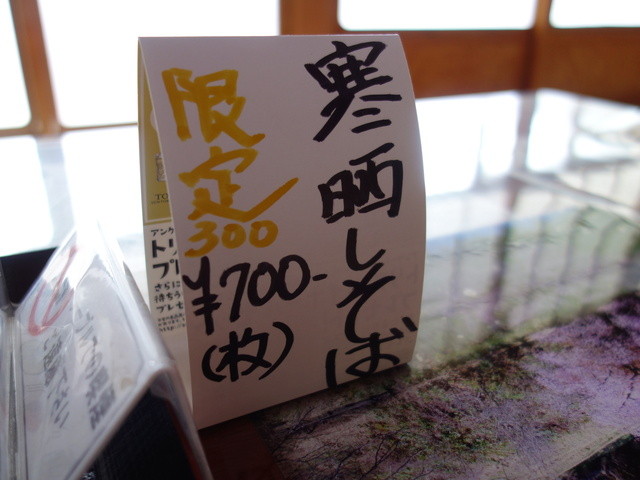 寒晒しそば
限定300
¥700-
(枚)
アンケ
トリ
プレ
さらに
待ちう
プレゼ